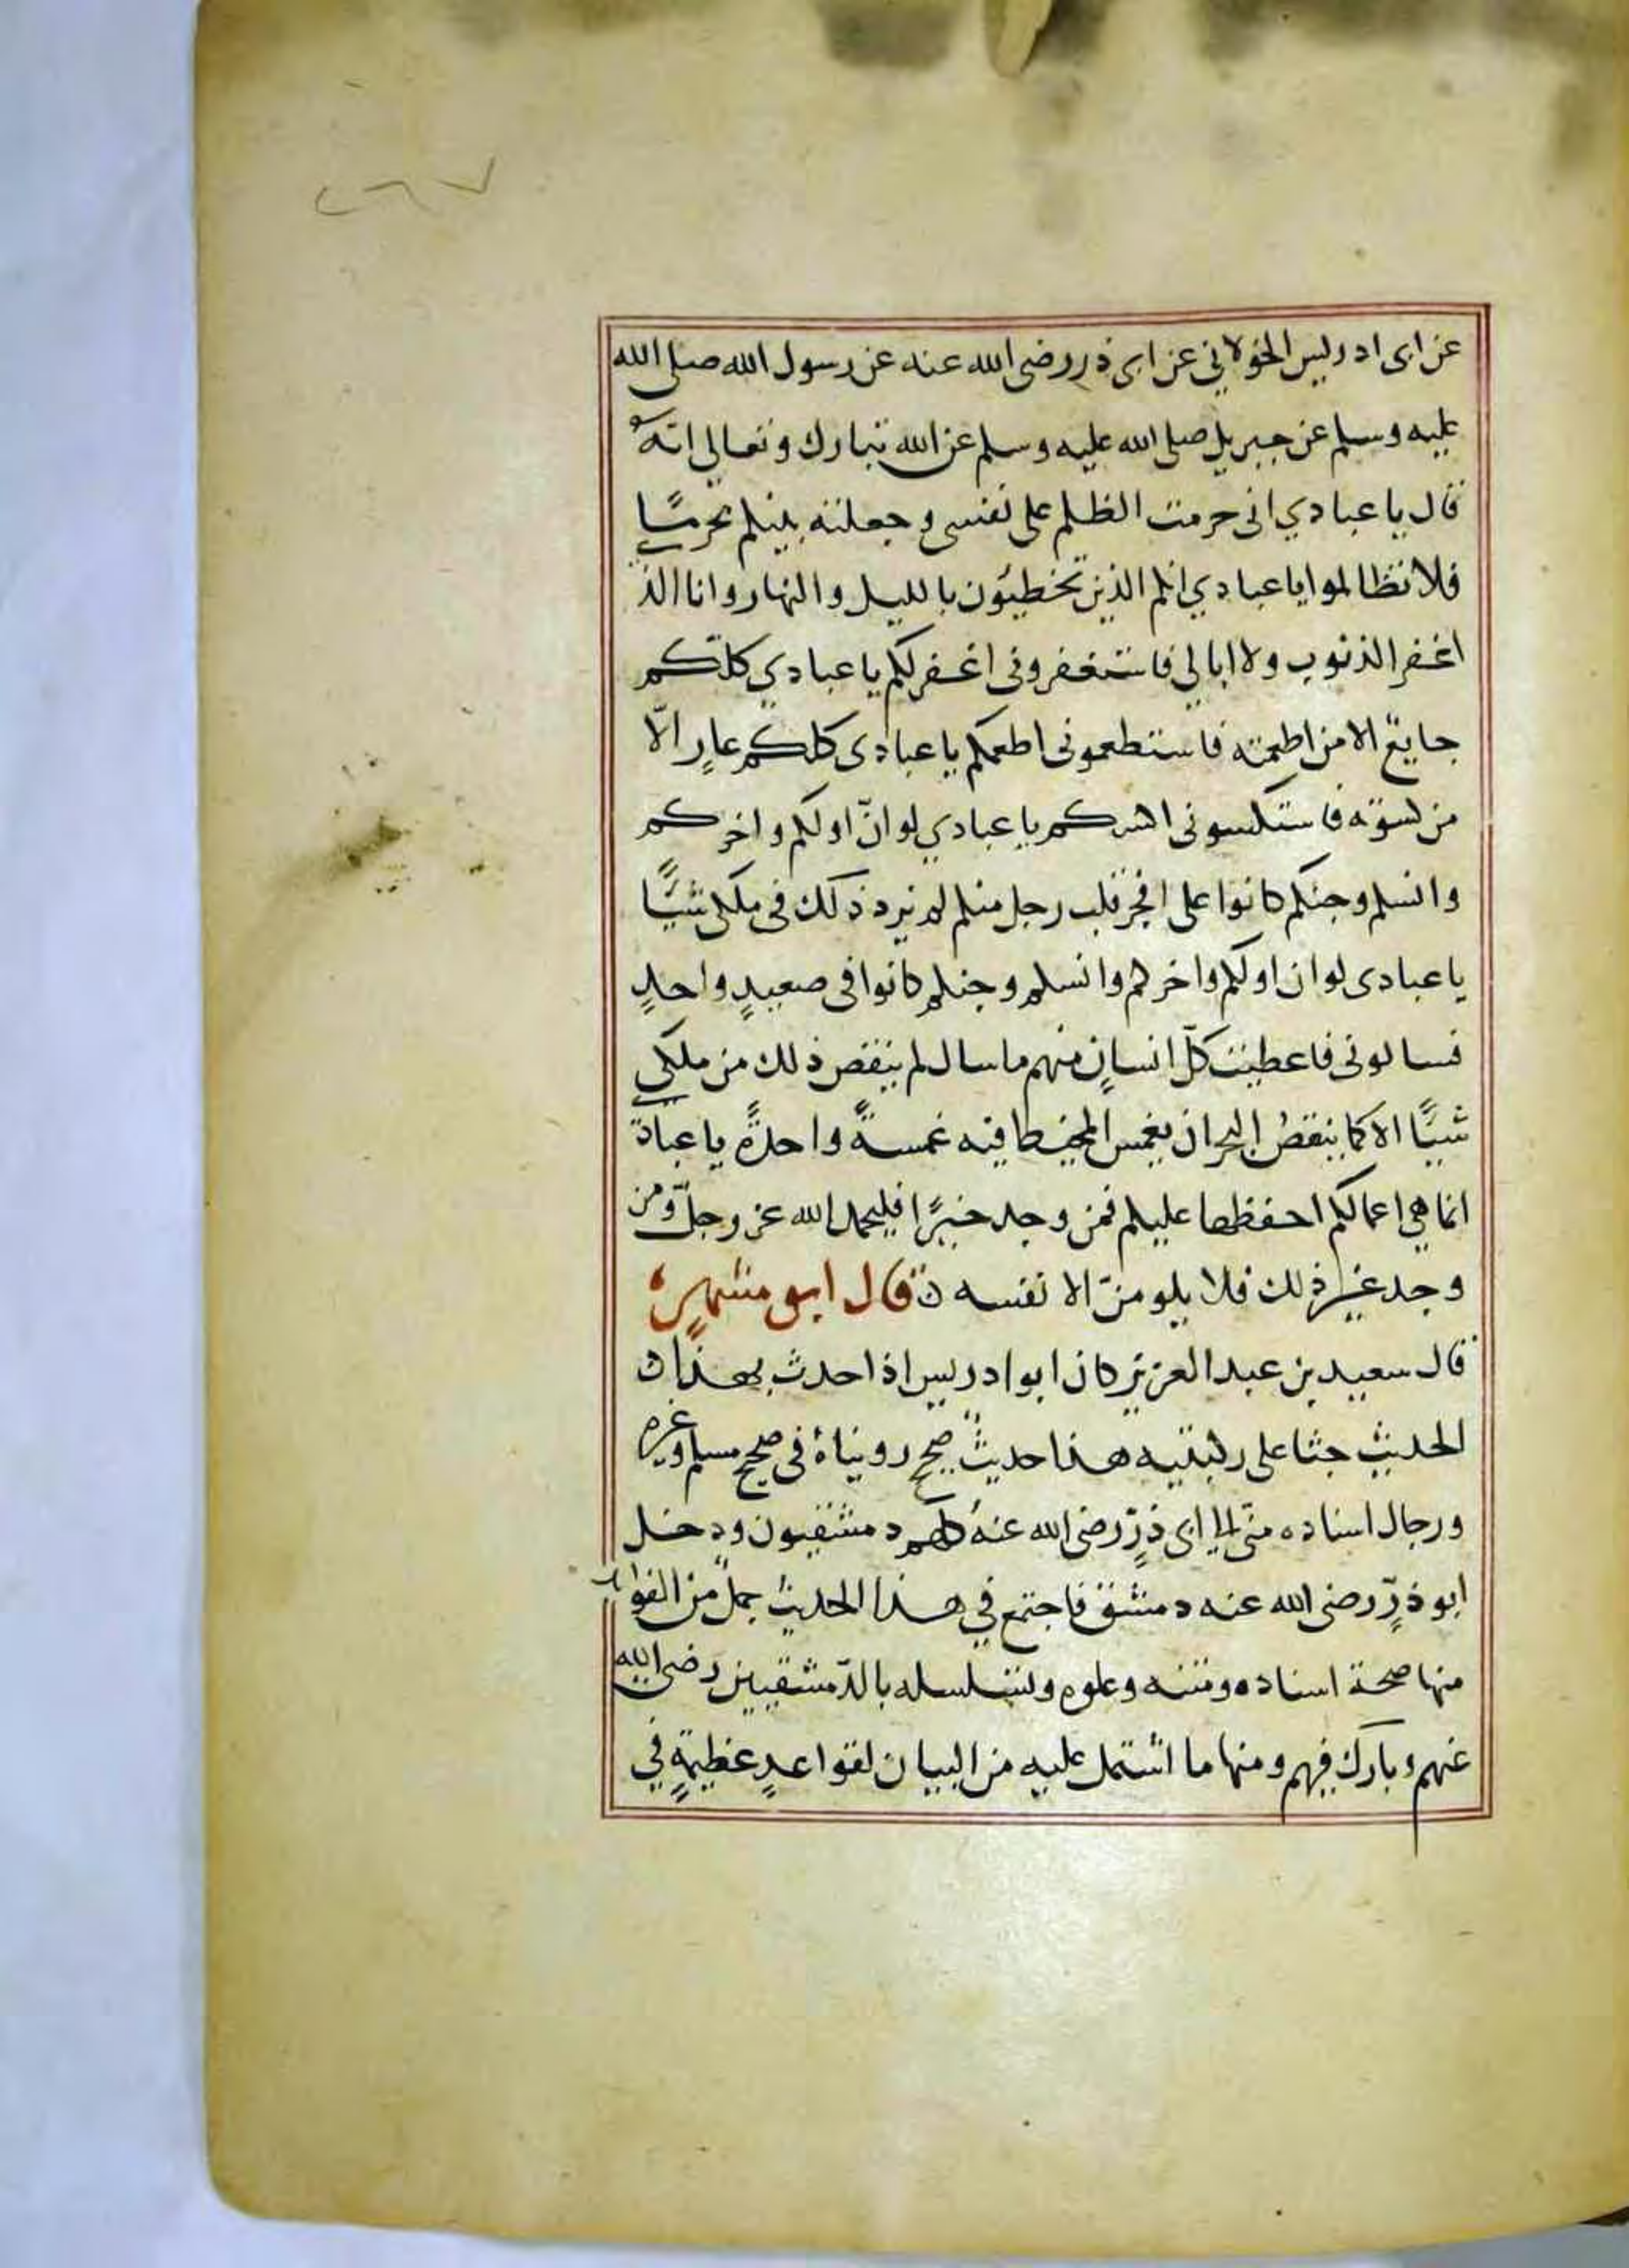 ٢٦٧
عن ابى ادريس الخولاني عن ابى ذر رضى الله عنه عن رسول الله صلى الله
عليه وسلم عن جبريل صلى الله عليه وسلم عن الله تبارك وتعالى انه
قال يا عبادي انى حرمت الظلم على نفسى وجعلته بينكم محرمًا
فلا تظالموا يا عبادي انكم الذين تخطئون بالليل والنهار وانا الذ
اغفر الذنوب ولا ابالي فاستغفرونى اغفر لكم يا عبادي كلّكم
جايع الا من اطعمته فاستطعمونى اطعمكم يا عبادى كلكم عارٍ الّا
من كسوته فاستكسونى اكسكم يا عبادي لو انّ اولكم واخركم
وانسكم وجنكم كانوا على افجر قلب رجل منكم لم يزد ذلك فى ملكى شيئًا
يا عبادى لو ان اولكم واخركم وانسكم وجنكم كانوا فى صعيدٍ واحدٍ
فسالونى فاعطيت كلّ انسانٍ منهم ما سال لم ينقص ذلك من ملكى
شيئًا الا كما ينقصُ البحر ان يغمس المخيط فيه غمسةً واحدةً يا عباد
انما هي اعمالكم احفظها عليكم فمن وجد خيرًا فليحمد الله عز وجلّ ومن
وجد غير ذلك فلا يلومنّ الا نفسه ن قال ابو مسهرٍ
قال سعيد بن عبد العزيز كان ابو ادريس اذا حدث بهذا
الحديث جثا على ركبتيه هذا حديثٌ صحيح رويناهُ فى صحيح مسلم وغيره
ورجال اسناده منّى الى ابى ذرٍّ رضى الله عنهُ كلهم دمشقيون ودخل
ابو ذرٍّ رضى الله عنه دمشق فاجتمع في هذا الحديث جملٌ من الفوا
منها صحة اسناده ومتنه وعلوه وتسلسله بالدّمشقيين رضى الله
عنهم وبارك فيهم ومنها ما اشتمل عليه من البيان لقواعدٍ عظيمةٍ في